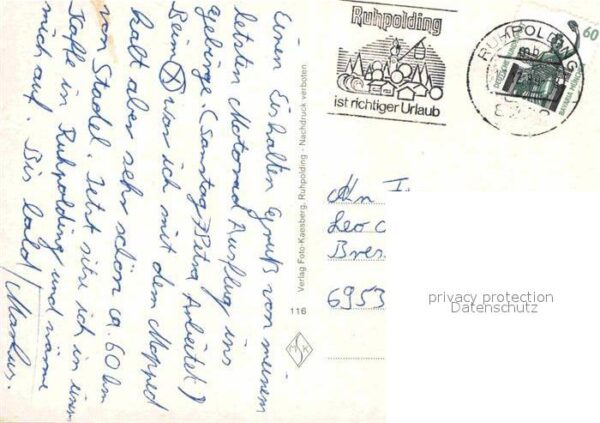 Einen Eiskalten Gruß von meinem
letzten Motorrad Ausflug ins
gebirge. (Samstag, Petra Arbeitet!)
Beim X war ich mit dem Mopped
kalt aber sehr schön ca. 60 km
von Stadel. Jetzt sitze ich in einem
Kaffe in Ruhpolding und wärme
mich auf. Bis bald / Markus.
116
Verlag Foto-Kaesberg, Ruhpolding - Nachdruck verboten
Ruhpolding
ist richtiger Urlaub
RUHPOLDING
60
DEUTSCHE BUNDESPOST
BAVARIA MÜNCHEN
Leo
6953
privacy protection
Datenschutz